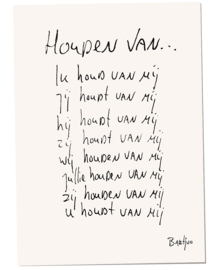 HOUDEN VAN...
Ik houd VAN MIJ
Jij houdt VAN MIJ
hij houdt VAN MIJ
zij houdt VAN MIJ
wij houden VAN MIJ
jullie houden VAN MIJ
zij houden VAN MIJ
u houdt VAN MIJ